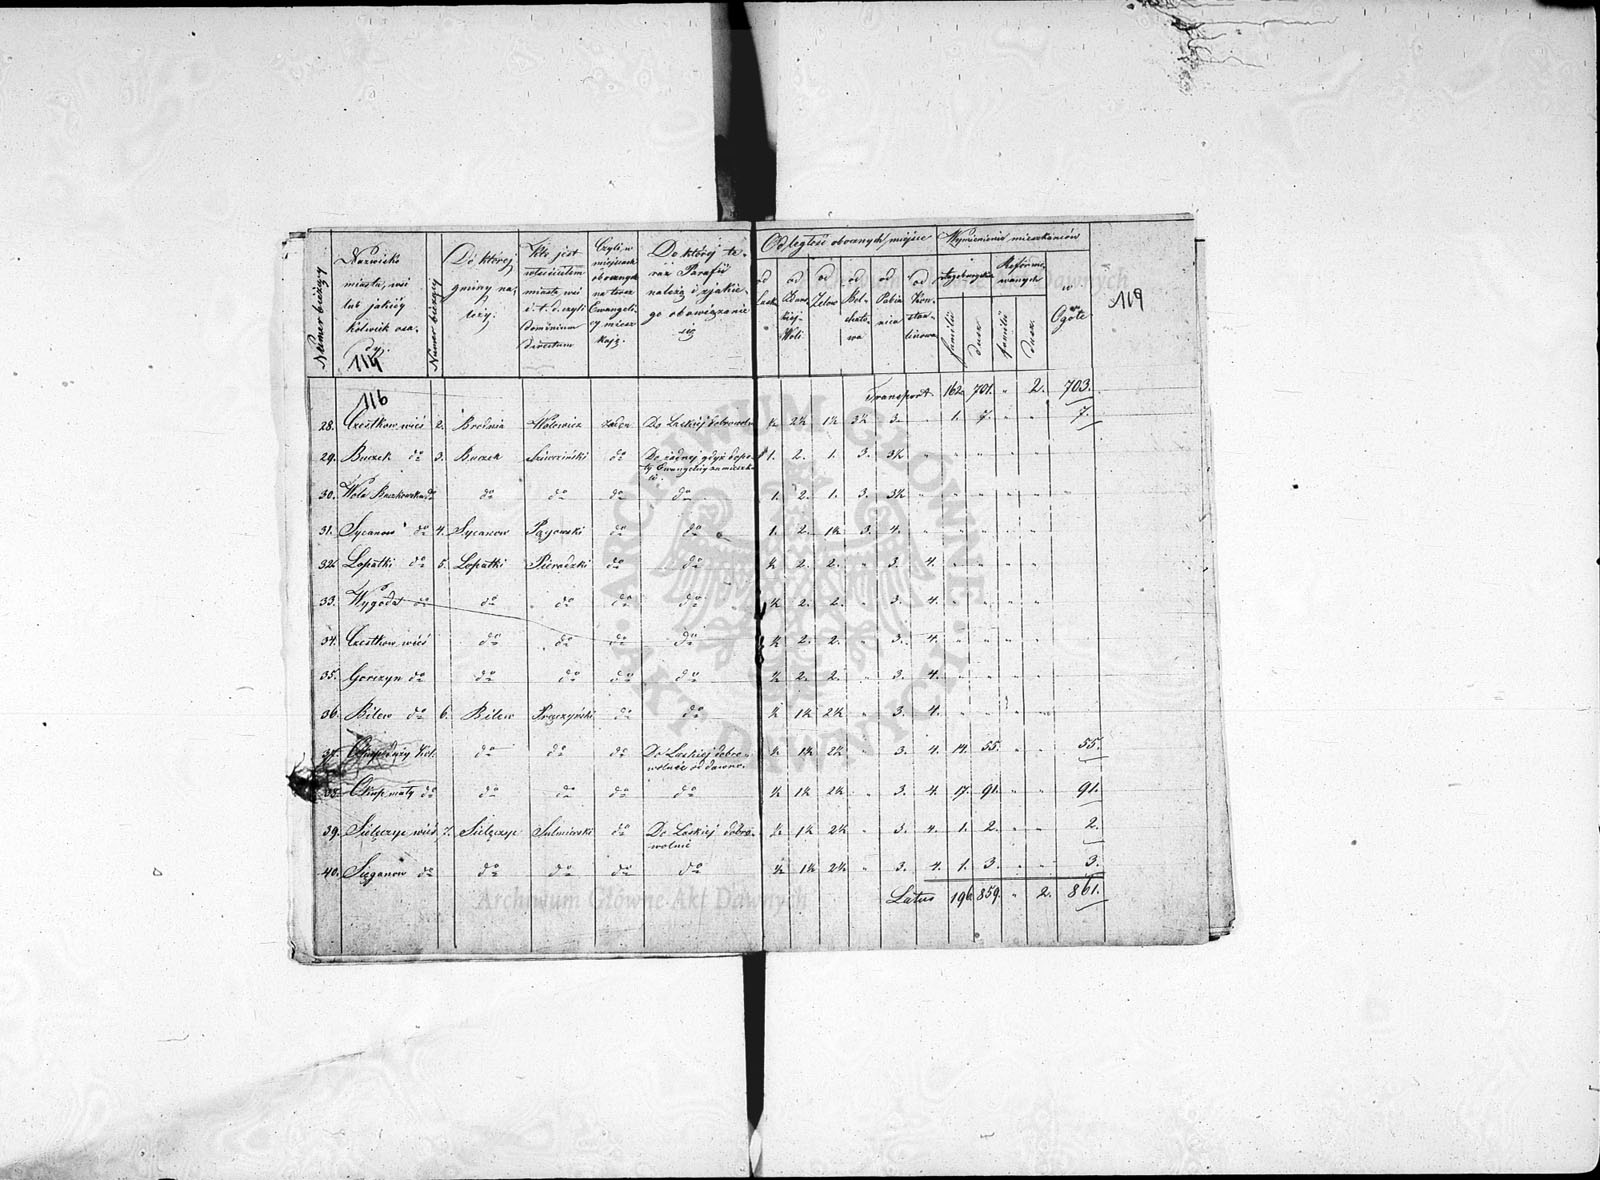 Numer bieżący
Nazwisko
miasta, wsi
lub jakiéj
kolwiek osa-
dy.
114
116
Numer bieżący
Do któréj
gminy na-
leży.
Kto jest
włascicielem
miasta, wsi
i t. d. czyli
Dominium
directum
Czyli w
miejscach
obocznych
Ewangeli-
cy miesz-
kają.
Do któréj te-
raz Parafii
należą i z jakie-
go obowiązanie
się
Odległość obocznych miejsc
od
Łasku
od
Zduń-
skiej
Woli
od
Zelow
od
Beł-
chato-
wa
od
Pabia-
nic
od
Kon-
stan-
tinowa
Wymienienie mieszkańców
Augsburgskich
familii
dusz
Reformo-
wanych
familii
dusz.
w
Ogóle
119
Transport 162. 701. " 2. 703.
28. Czestkow wieś 2. Brodnia Wolowicz Do Laskiéj dobrowolnie ½ 2½ 1½ 3½ 3. " 1. 7. " " 7.
29. Buczek do 3. Buczek do Do żadnéj gdyż 1. 2. 1. 3. 3½ " " " " " "
30. Wola Buczkowska do do do do do 1. 2. 1. 3. 3½ " " " " " "
31. Sycanow do 4. Sycanow do do 1. 2. 1½ 3. 4. " " " " " "
32. Lopatki do 5. Lopatki Sieradzki do do ½ 2. 2. " 3. 4. " " " " "
33. Wygoda do do do do do ½ 2. 2. " 3. 4. " " " " "
34. Czestkow wieś do do do do ½ 2. 2. " 3. 4. " " " " "
35. Gorczyn do do do do do ½ 2. 2. " 3. 4. " " " " "
36. Bilew do 6. Bilew do do ½ 1½ 2½ " 3. 4. " " " " "
37. Kol. do do do Do Laskiéj dobro-
wolnie od dawna. ½ 1½ 2½ " 3. 4. 14. 55. " " 55.
38. Okup maly do do do do do ½ 1½ 2½ " 3. 4. 17. 91. " " 91.
39. Sielęczyc wieś 7. Sielęczyc Sulmierski do Do Laskiéj dobro-
wolnie ½ 1½ 2½ " 3. 4. 1. 2. " " 2.
40. Sięganow do do do do do ½ 1½ 2½ " 3. 4. 1. 3. " " 3.
Latus 196. 859. " 2. 861.
ARCHIWUM GŁÓWNE AKT DAWNYCH
Archiwum Główne Akt Dawnych